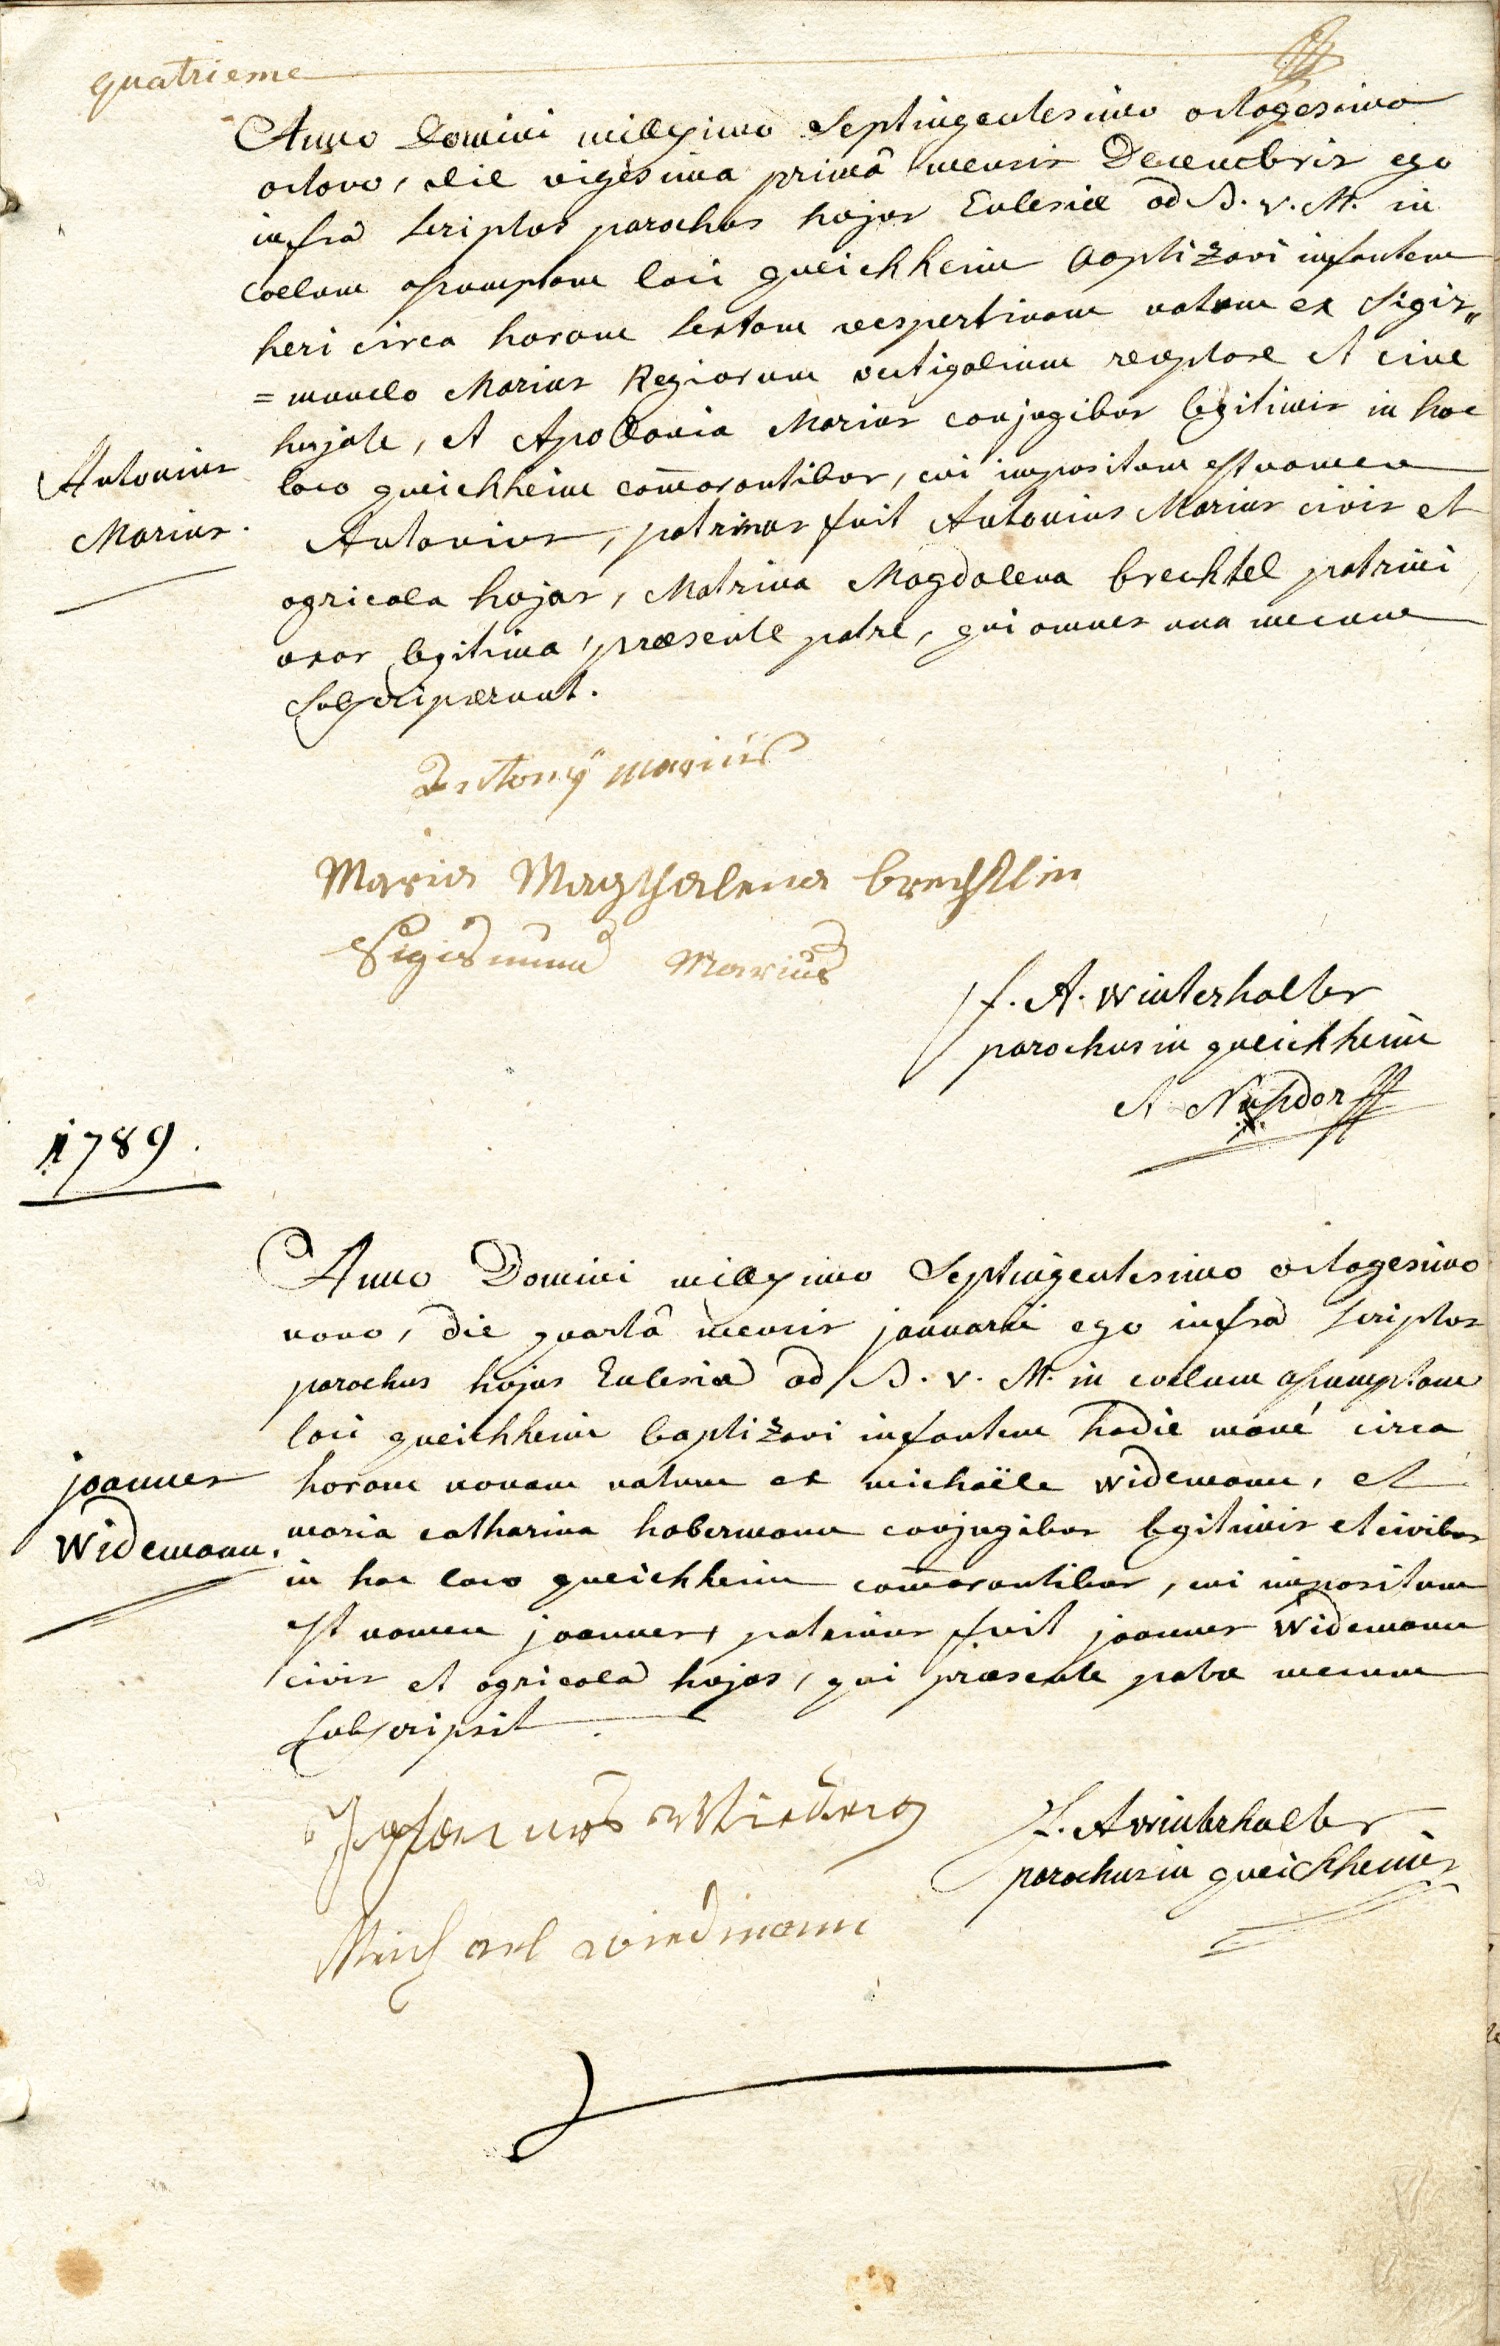 quatrieme
Anno Domini millesimo Septingentesimo octogesimo
octavo, die vigesima primâ mensis Decembris ego
infrà scriptus parochus hujus Ecclesiæ ad B. v. M. in
coelum assumptam loci queichheim baptizavi infantem
heri circa horam sextam vespertinam natum ex Sigis„
=mundo Marius Regiorum vectigalium receptore et cive
hujate, et Apollonia Marius conjugibus legitimis in hoc
loco queichheim com̄orantibus, cui impositum est nomen
Antonius
Marius.
Antonius, patrinus fuit Antonius Marius civis et
agricola hujas, Matrina Magdalena brechtel patrini
uxor legitima, præsente patre, qui omnes una mecum
subscripserunt.
Antony marius
Maria Magthalena brechtlin
Sigismund Marius
f. A. Winterhalter
parochus in queichheim
et Nusdorf
1789.
Anno Domini millesimo Septingentesimo octogesimo
nono, die quartâ mensis januarii ego infrà scriptus
parochus hujus Ecclesiæ ad B. v. M. in coelum assumptam
loci queichheim baptizavi infantem hodie mané circa
joannes
Widemann.
horam nonam natum ex michaële Widemann, et
maria catharina habermann conjugibus legitimis et civibus
in hoc loco queichheim com̄orantibus, cui impositum
est nomen joannes, patrinus fuit joannes Widemann
civis et agricola hujas, qui præsente patre mecum
subscripsit.
f. A Winterhalter
parochus in queichheim
Michael wiedmann